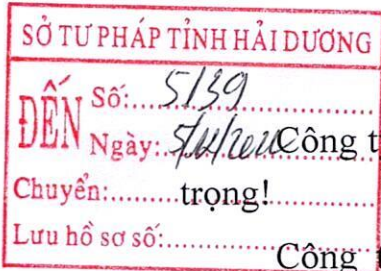 SỞ TƯ PHÁP TỈNH HẢI DƯƠNG
ĐẾN
Số:.....5139
Ngày: Công t
Chuyển:........trọng!
Lưu hồ sơ số:
Công t